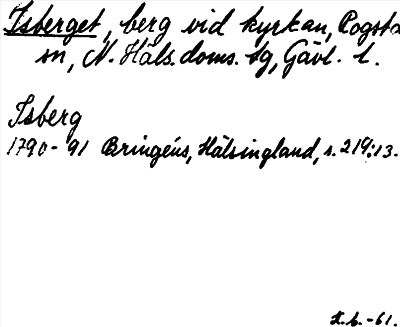 Isberget, berg vid kyrkan, Rogsta
sn, N. Häls. doms. tg, Gävl. l.
Isberg
1790-91 Bringéus, Hälsingland, s. 219:13.
H.L. -61.